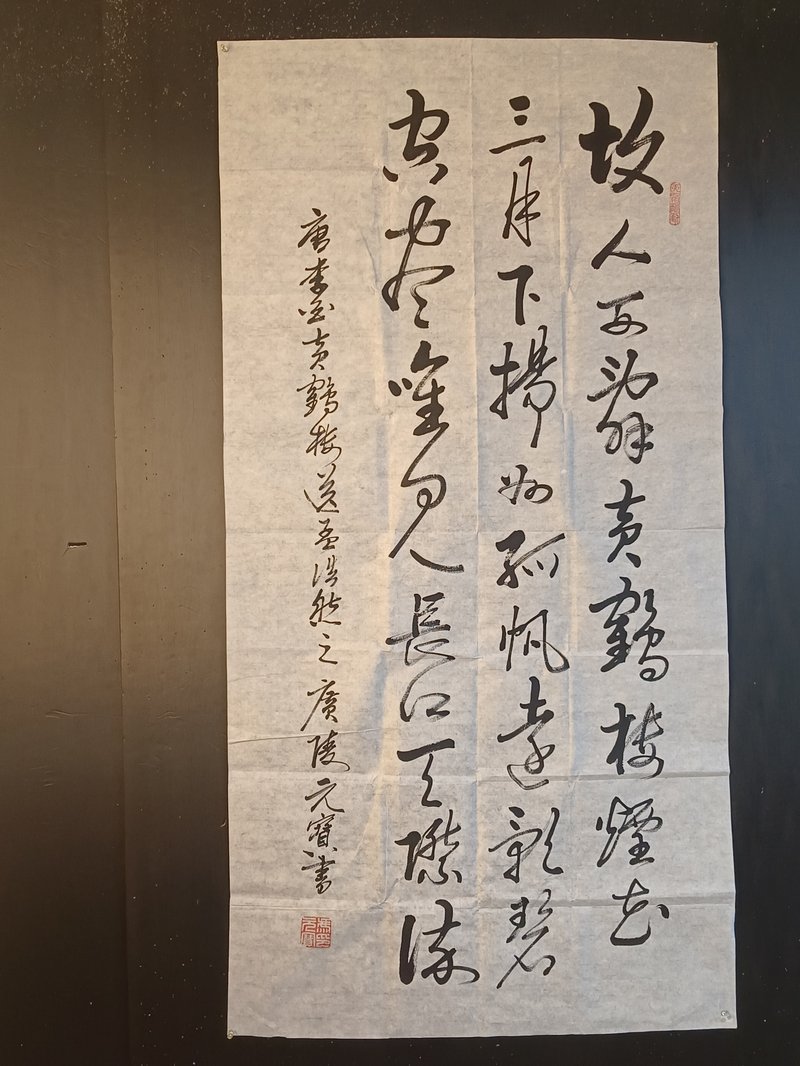 故人西辭黃鶴楼煙花
三月下揚州孤帆遠影碧
空尽唯见長江天際流
唐李白黃鶴楼送孟浩然之廣陵元寶書